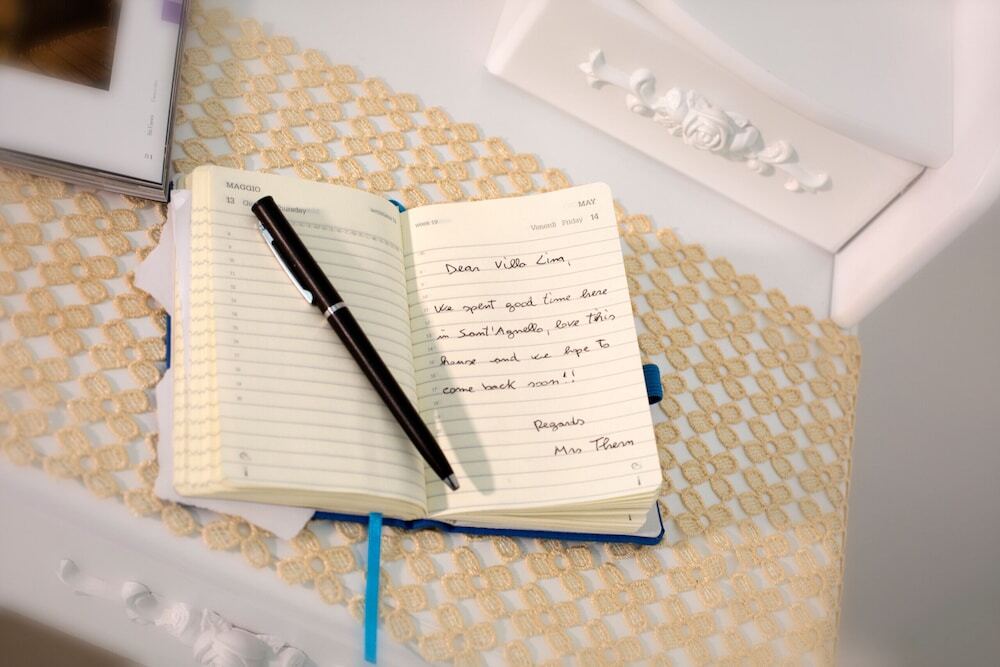 MAGGIO
13
Thursday
week 19
MAY
Venerdì Friday 14
Dear Villa Lim,
We spent good time here
in Sant'Agnello, love this
house and we hope to
come back soon!!
Regards
Mrs Thern